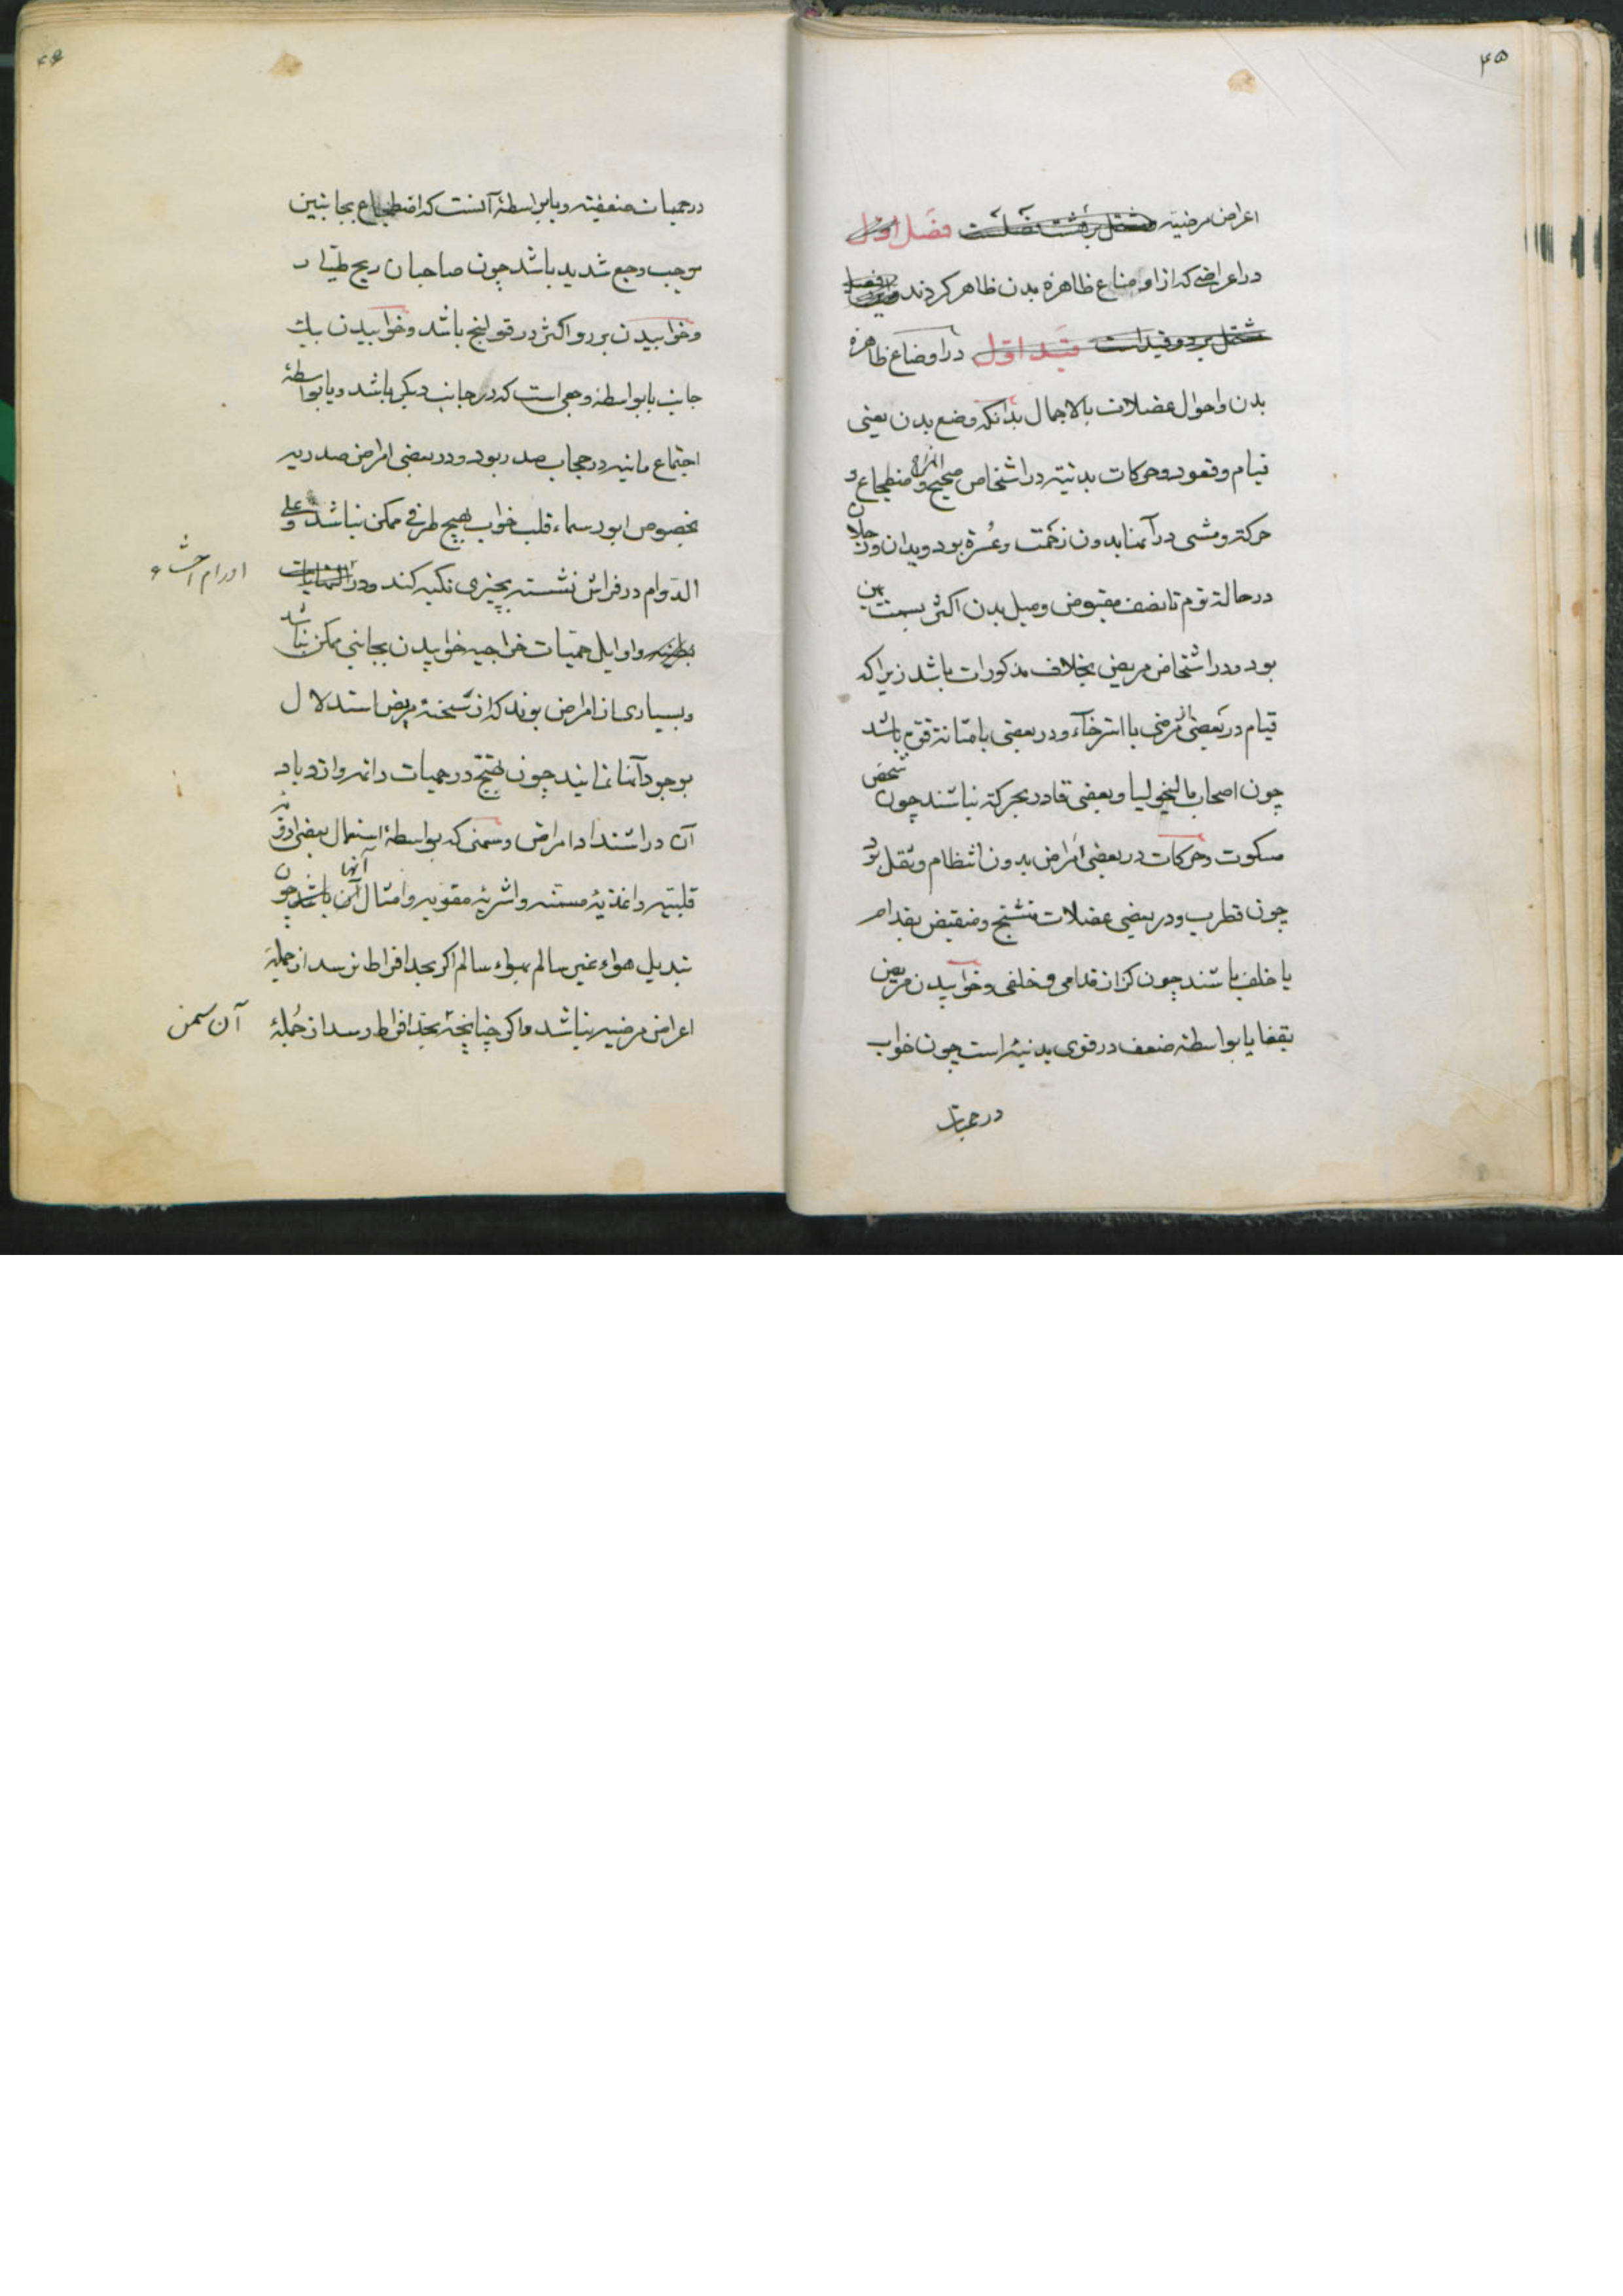 ۴۵
اعراض مرضیه مشتمل بر هشت فصلست فصل اول
در اعراضی که از اوضاع ظاهره بدن ظاهر کردند
مشتمل بر دو قید است قید اول در اوضاع ظاهره
بدن و احوال عضلات بالاجمال بدانکه وضع بدن یعنی
قیام و قعود و حرکات بدنیه در اشخاص صحیح المزاج و اضطجاع و
حرکت و مشی در آنها بدون زحمت و عسرة بود و یدان و رجلان
در حالة نوم تا نصف مقبوض و میل بدن اکثر بسمت یمین
بود و در اشخاص مریض بخلاف مذکورات باشد زیرا که
قیام در بعضی از مرضی با استرخاء و در بعضی با متانة قوی باشد
چون اصحاب مالیخولیا و بعضی قادر بحرکة نباشند چون شخص
مسکوت و حرکات در بعضی امراض بدون انتظام و ثقل بود
چون قطرب و در بعضی عضلات متشنج و منقبض بقدام
یا خلف باشند چون کزاز قدامی و خلفی و خوابیدن مریض
بقفا یا بواسطه ضعف در قوی بدنیه است چون خواب
در حمیات
۴۶
در حمیات ضعفیه و یا بواسطهٔ آنست که اضطجاع بجانبین
موجب وجع شدید باشد چون صاحبان ریح
وخوابیدن بر رو اکثر در قولنج باشد وخوابیدن بیک
جانب یا بواسطه وجعی است که در جانب دیکر باشد و یا بواسطهٔ
اجتماع مائیه در حجاب صدر بود و در بعضی امراض صدریه
بخصوص ابورسماء قلب خواب بهیچ طرفی ممکن نباشد و علی
الدوام در فراش نشسته بچیزی تکیه کند و در
اورام احشاء
و اوایل حمیات خراجیه خوابیدن بجانبی ممکن نباشد
و بسیاری از امراض بوند که از سخنهٔ مریض استدلال
بوجود آنها نمایند چون تهیج در حمیات دائمه و ازدیاد
آن در اشتداد امراض و سمنی که بواسطهٔ استعمال بعضی ادویه
قلبیه و اغذیهٔ مسمنه و اشربهٔ مقویه و امثال آنها باشد چون
تبدیل هواء غیر سالم بهواء سالم اکر بحد افراط نرسد از جملهٔ
اعراض مرضیه نباشد و اکر چنانچه بحد افراط رسد از جملهٔ
آن سمن